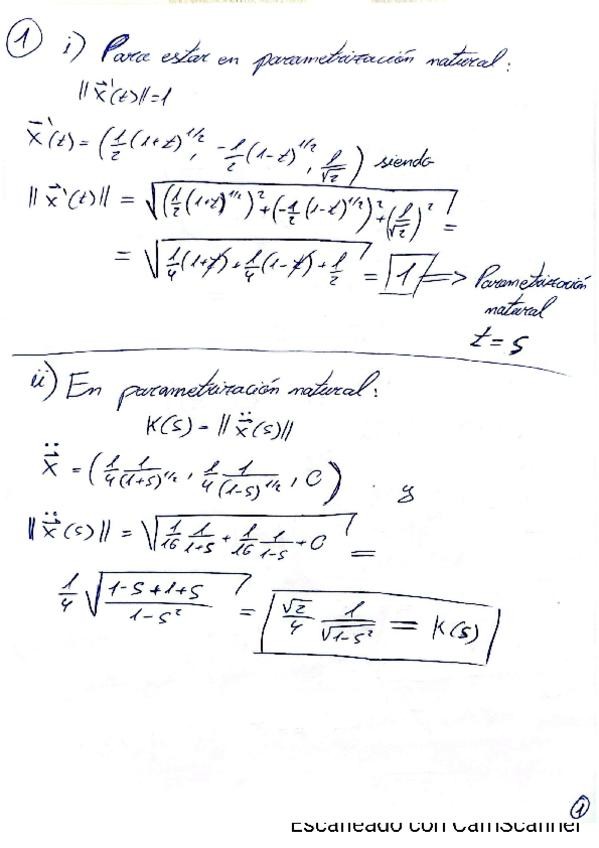 ① i) Para estar en parametrización natural:
||x⃗'(t)|| = 1
x⃗'(t) = (1/2 (1+t)^1/2, -1/2 (1-t)^1/2, 1/√2) siendo
||x⃗'(t)|| = √((1/2 (1+t)^1/2)² + (-1/2 (1-t)^1/2)² + (1/√2)²) =
= √(1/4 (1+t) + 1/4 (1-t) + 1/2) = 1 => Parametrización
natural
t = s
ii) En parametrización natural:
K(s) = ||ẍ(s)||
ẍ = (1/4 1/(1+s)^1/2, 1/4 1/(1-s)^1/2, 0) y
||ẍ(s)|| = √(1/16 1/(1+s) + 1/16 1/(1-s) + 0) =
1/4 √((1-s+1+s)/(1-s²)) = √2/4 1/√(1-s²) = K(s)
①
Escaneado con CamScanner